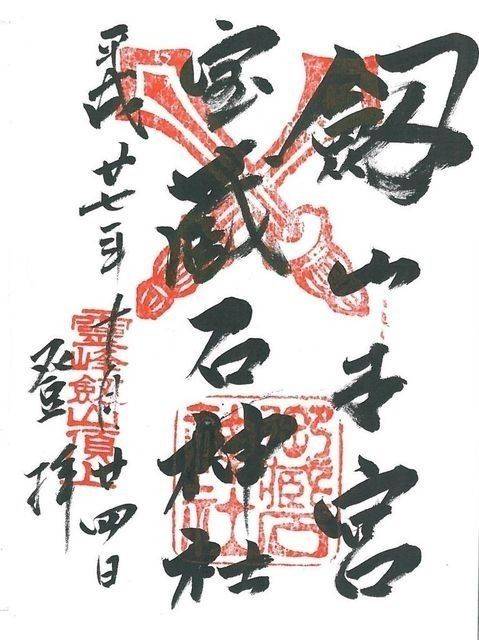 劔山本宮
宝蔵石神社
平成廿七年十月廿四日
登拝
靈峰劔山頂上